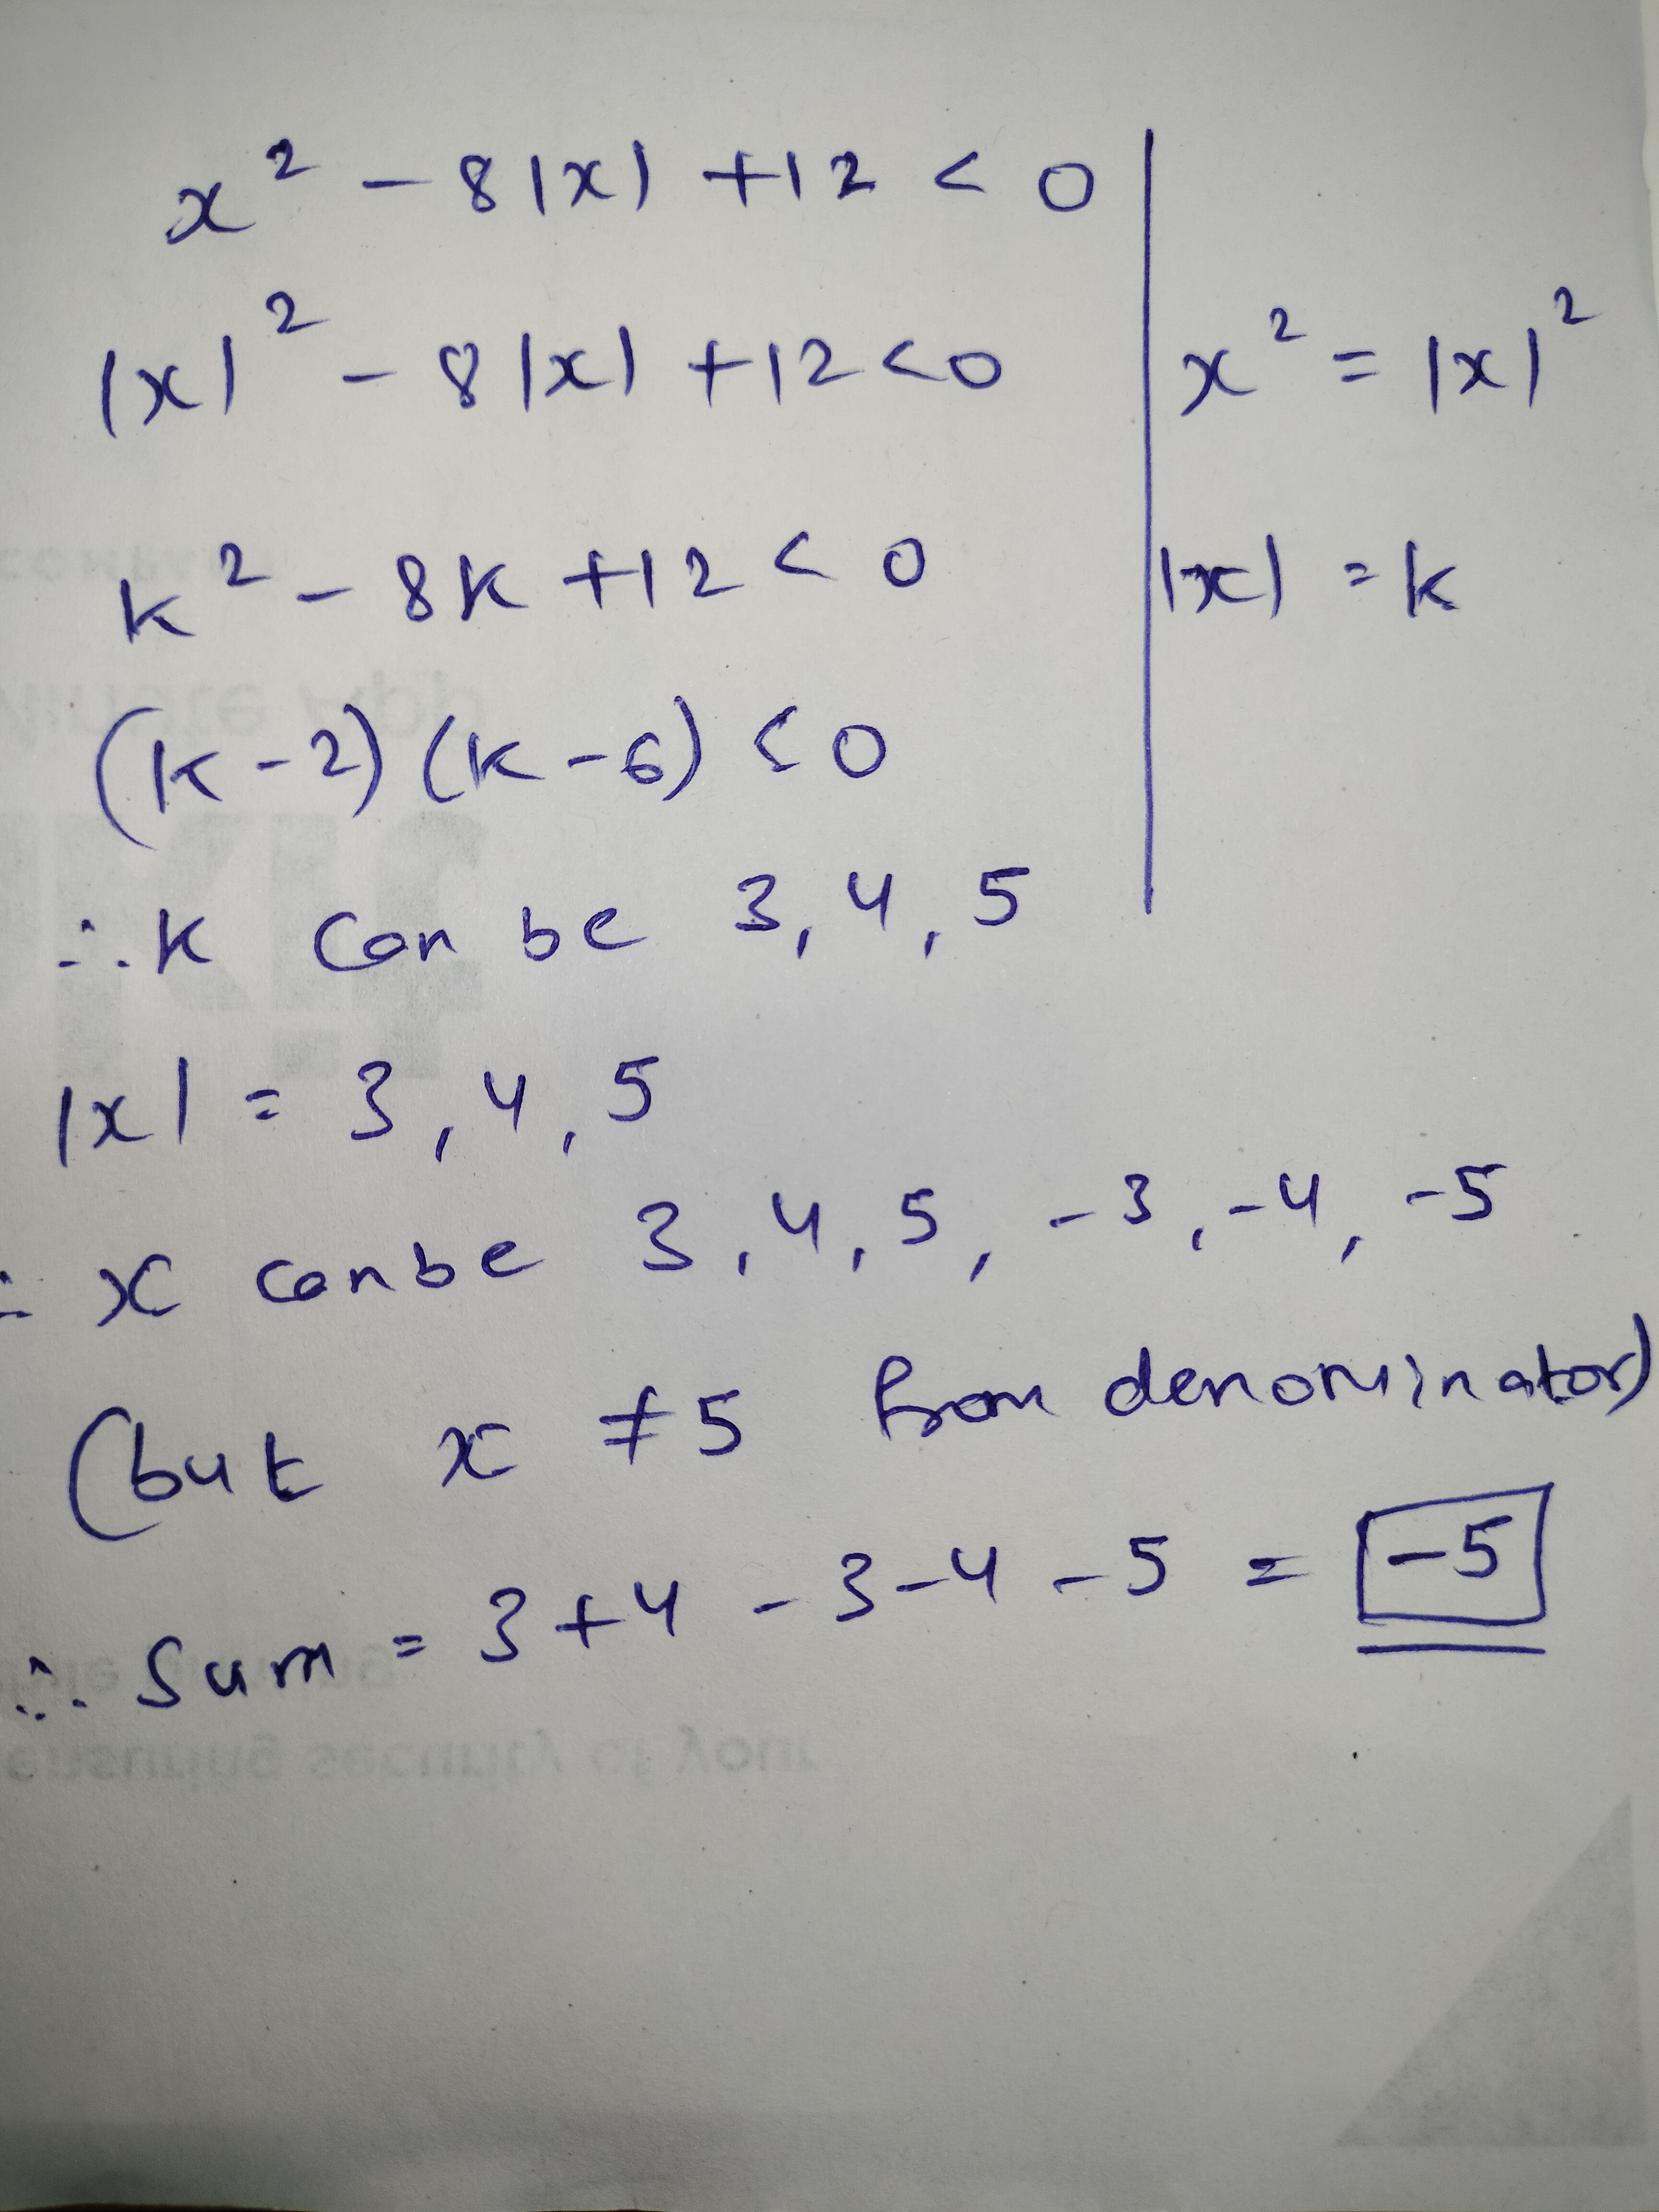 x² - 8|x| +12 < 0
|x|² - 8|x| +12 <0
x² = |x|²
k² - 8k +12 < 0
|x| = k
(k-2) (k-6) <0
∴ k can be 3, 4, 5
|x| = 3, 4, 5
∴ x can be 3, 4, 5, -3, -4, -5
(but x ≠ 5 from denominator)
∴ Sum = 3+4 -3-4 -5 = -5
ensuring security of your